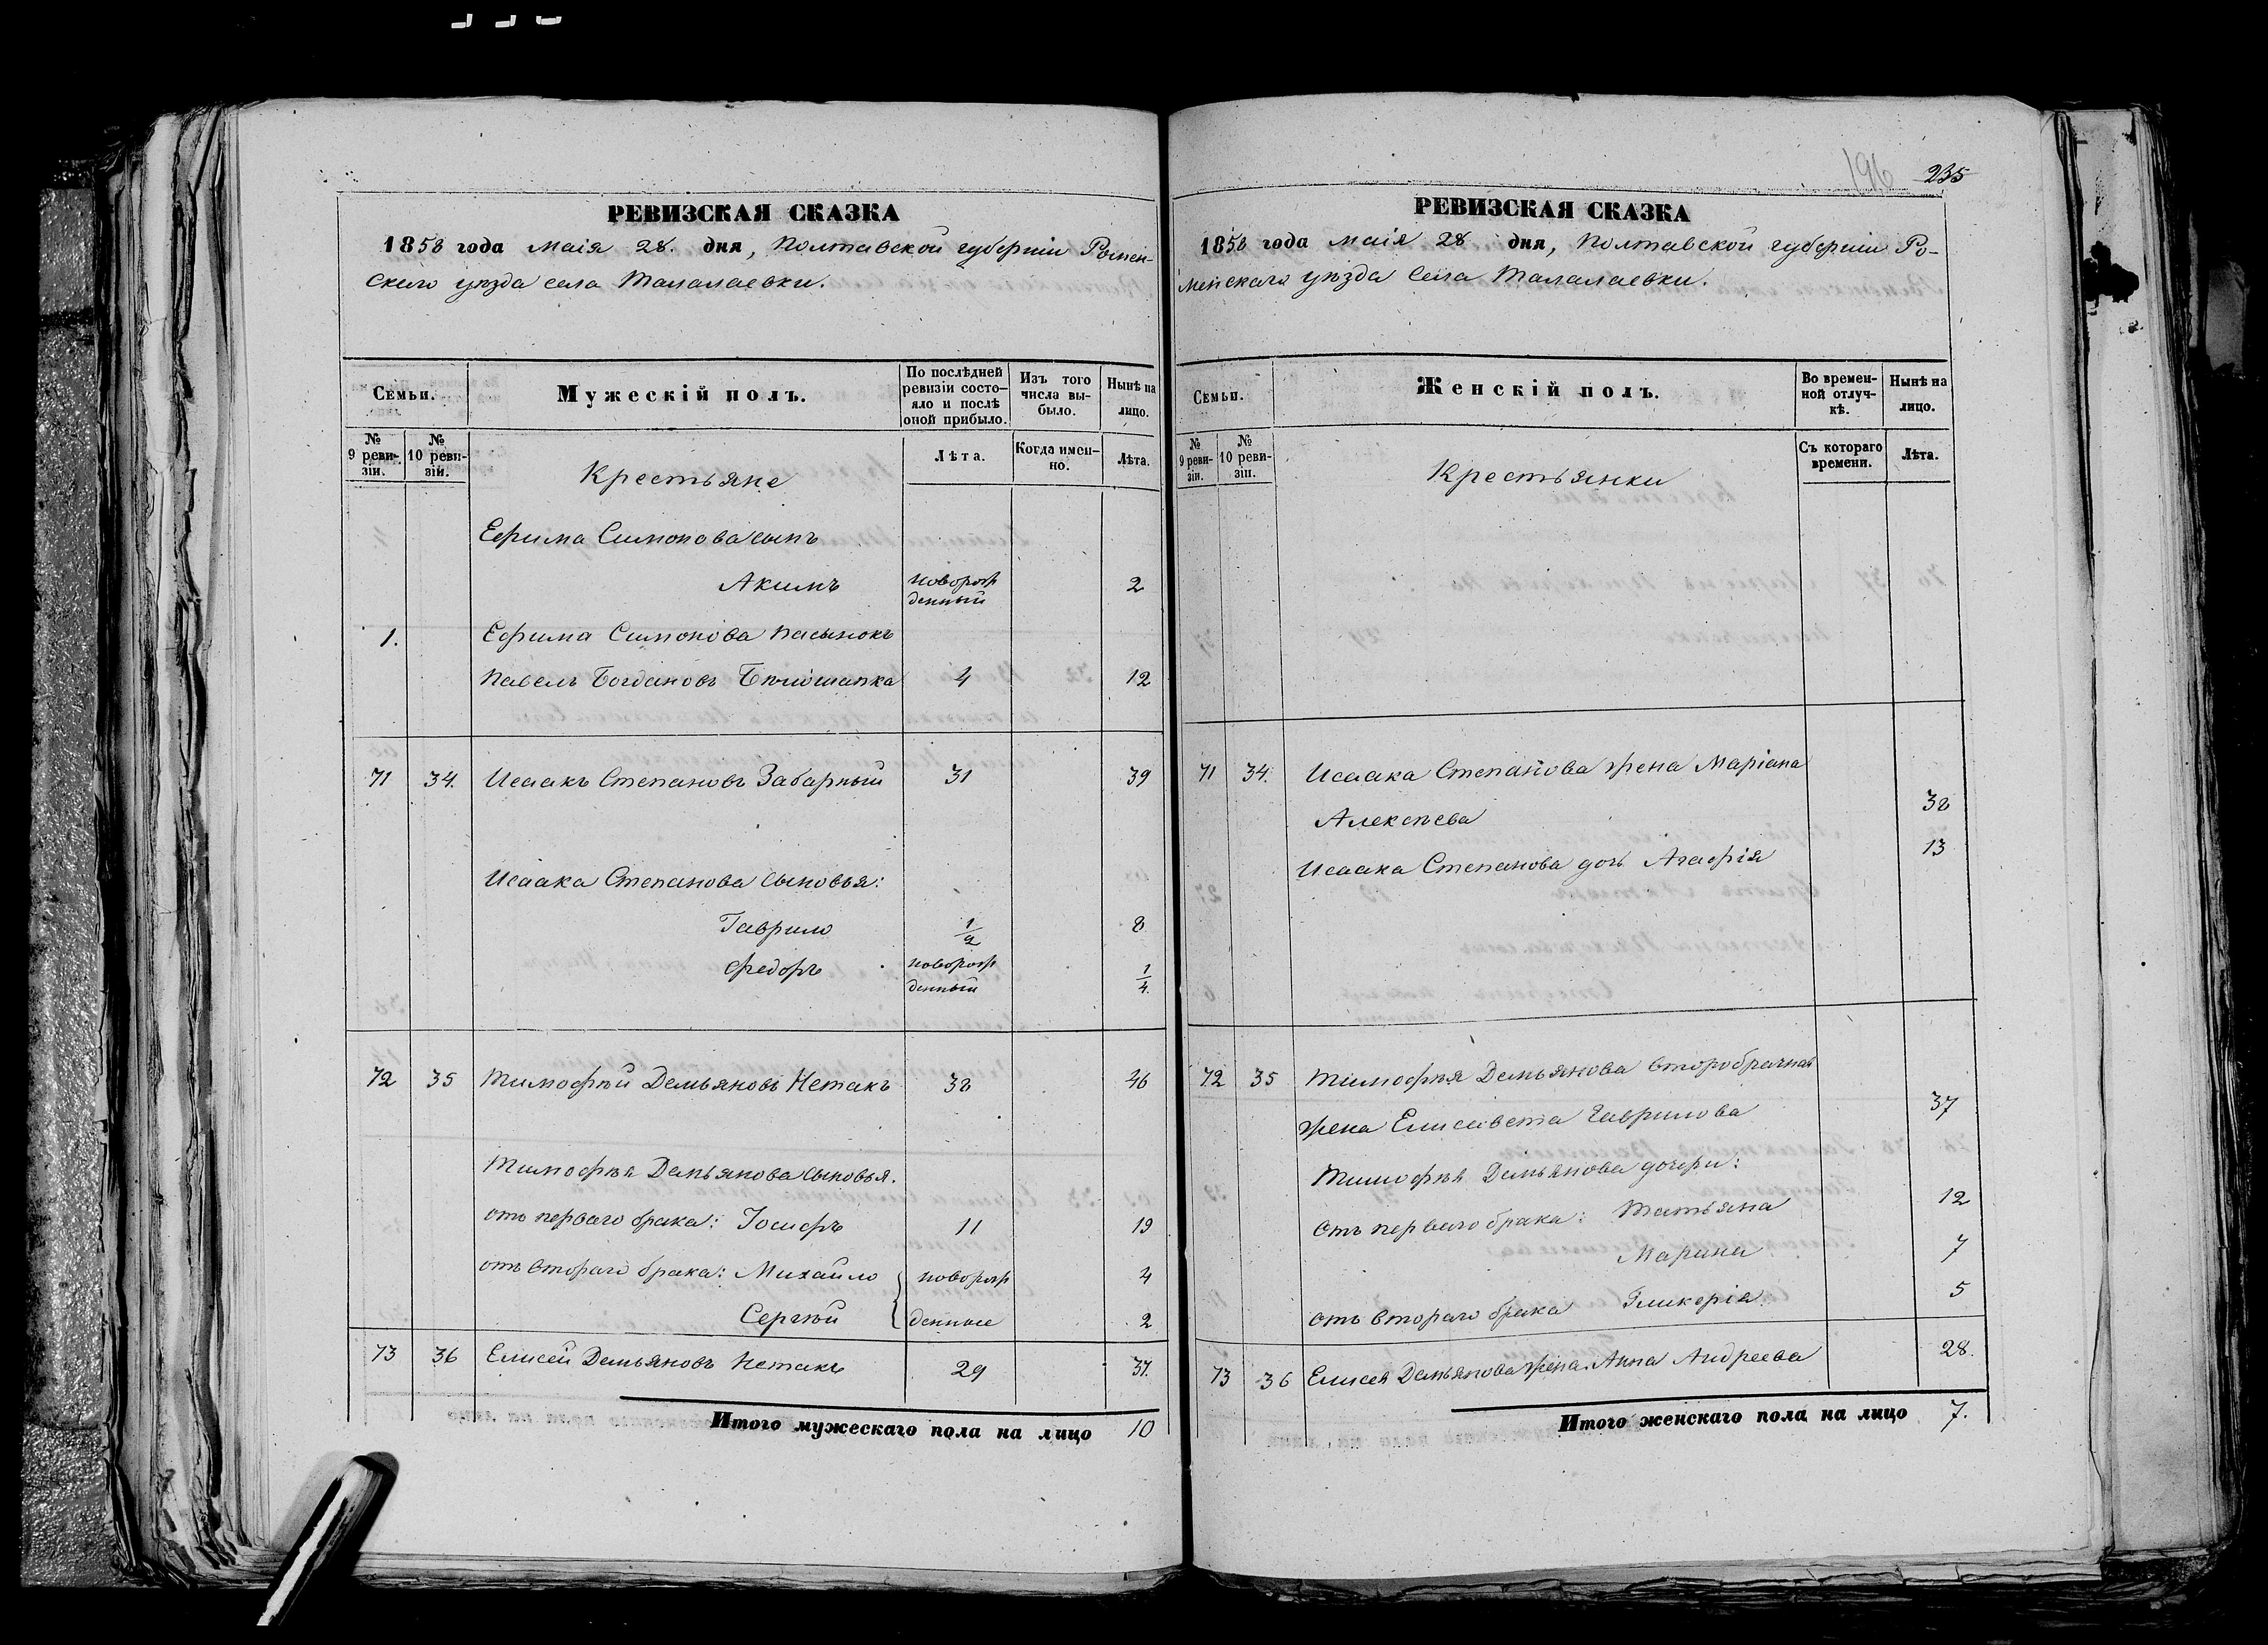 196 235
РЕВИЗСКАЯ СКАЗКА
1858 года маія 28. дня, Полтавской губерніи Ромен-
скаго уѣзда села Талалаевки.
Семьи.
Мужескій полъ.
По послѣдней ревизіи состо-яло и послѣ оной прибыло.
Изъ того числа вы-было.
Нынѣ на лицо.
№ 9 реви-зіи.
№ 10 реви-зіи.
Крестьяне
Лѣта.
Когда имен-но.
Лѣта.
Ефима Симонова сынъ
Акимъ новорож денный 2
1. Ефима Симонова пасынокъ
Павелъ Богдановъ Бѣлошапка 4 12
71 34. Исаакъ Степановъ Забарный 31 39
Исаака Степанова сыновья:
Гаврило 1/2 8
Федоръ новорож денный 1/4
72 35 Тимофѣй Демьяновъ Нетакъ 38 46
Тимофѣя Демьянова сыновья.
отъ перваго брака: Іосифъ 11 19
отъ втораго брака: Михайло новорож 4
Сергѣй денные 2
73 36 Елисей Демьяновъ Нетакъ 29 37.
Итого мужескаго пола на лицо 10
РЕВИЗСКАЯ СКАЗКА
1858 года маія 28 дня, Полтавской губерніи Ро-
менскаго уѣзда села Талалаевки.
Семьи.
Женскій полъ.
Во времен-ной отлуч-кѣ.
Нынѣ на лицо.
№ 9 реви-зіи.
№ 10 реви-зіи.
Крестьянки
Съ котораго времени.
Лѣта.
71 34. Исаака Степанова жена Маріана
Алексѣева 38
Исаака Степанова дочь Агафія 13
72 35 Тимофѣя Демьянова второбрачная
жена Елисавета Гаврилова 37
Тимофѣя Демьянова дочери:
отъ перваго брака: Татьяна 12
Марина 7
отъ втораго брака Гликерія 5
73 36 Елисея Демьянова жена Анна Андреева 28.
Итого женскаго пола на лицо 7.